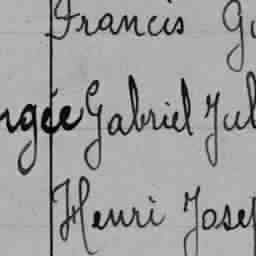 Francis G
ngée Gabriel Jul
Henri Josep